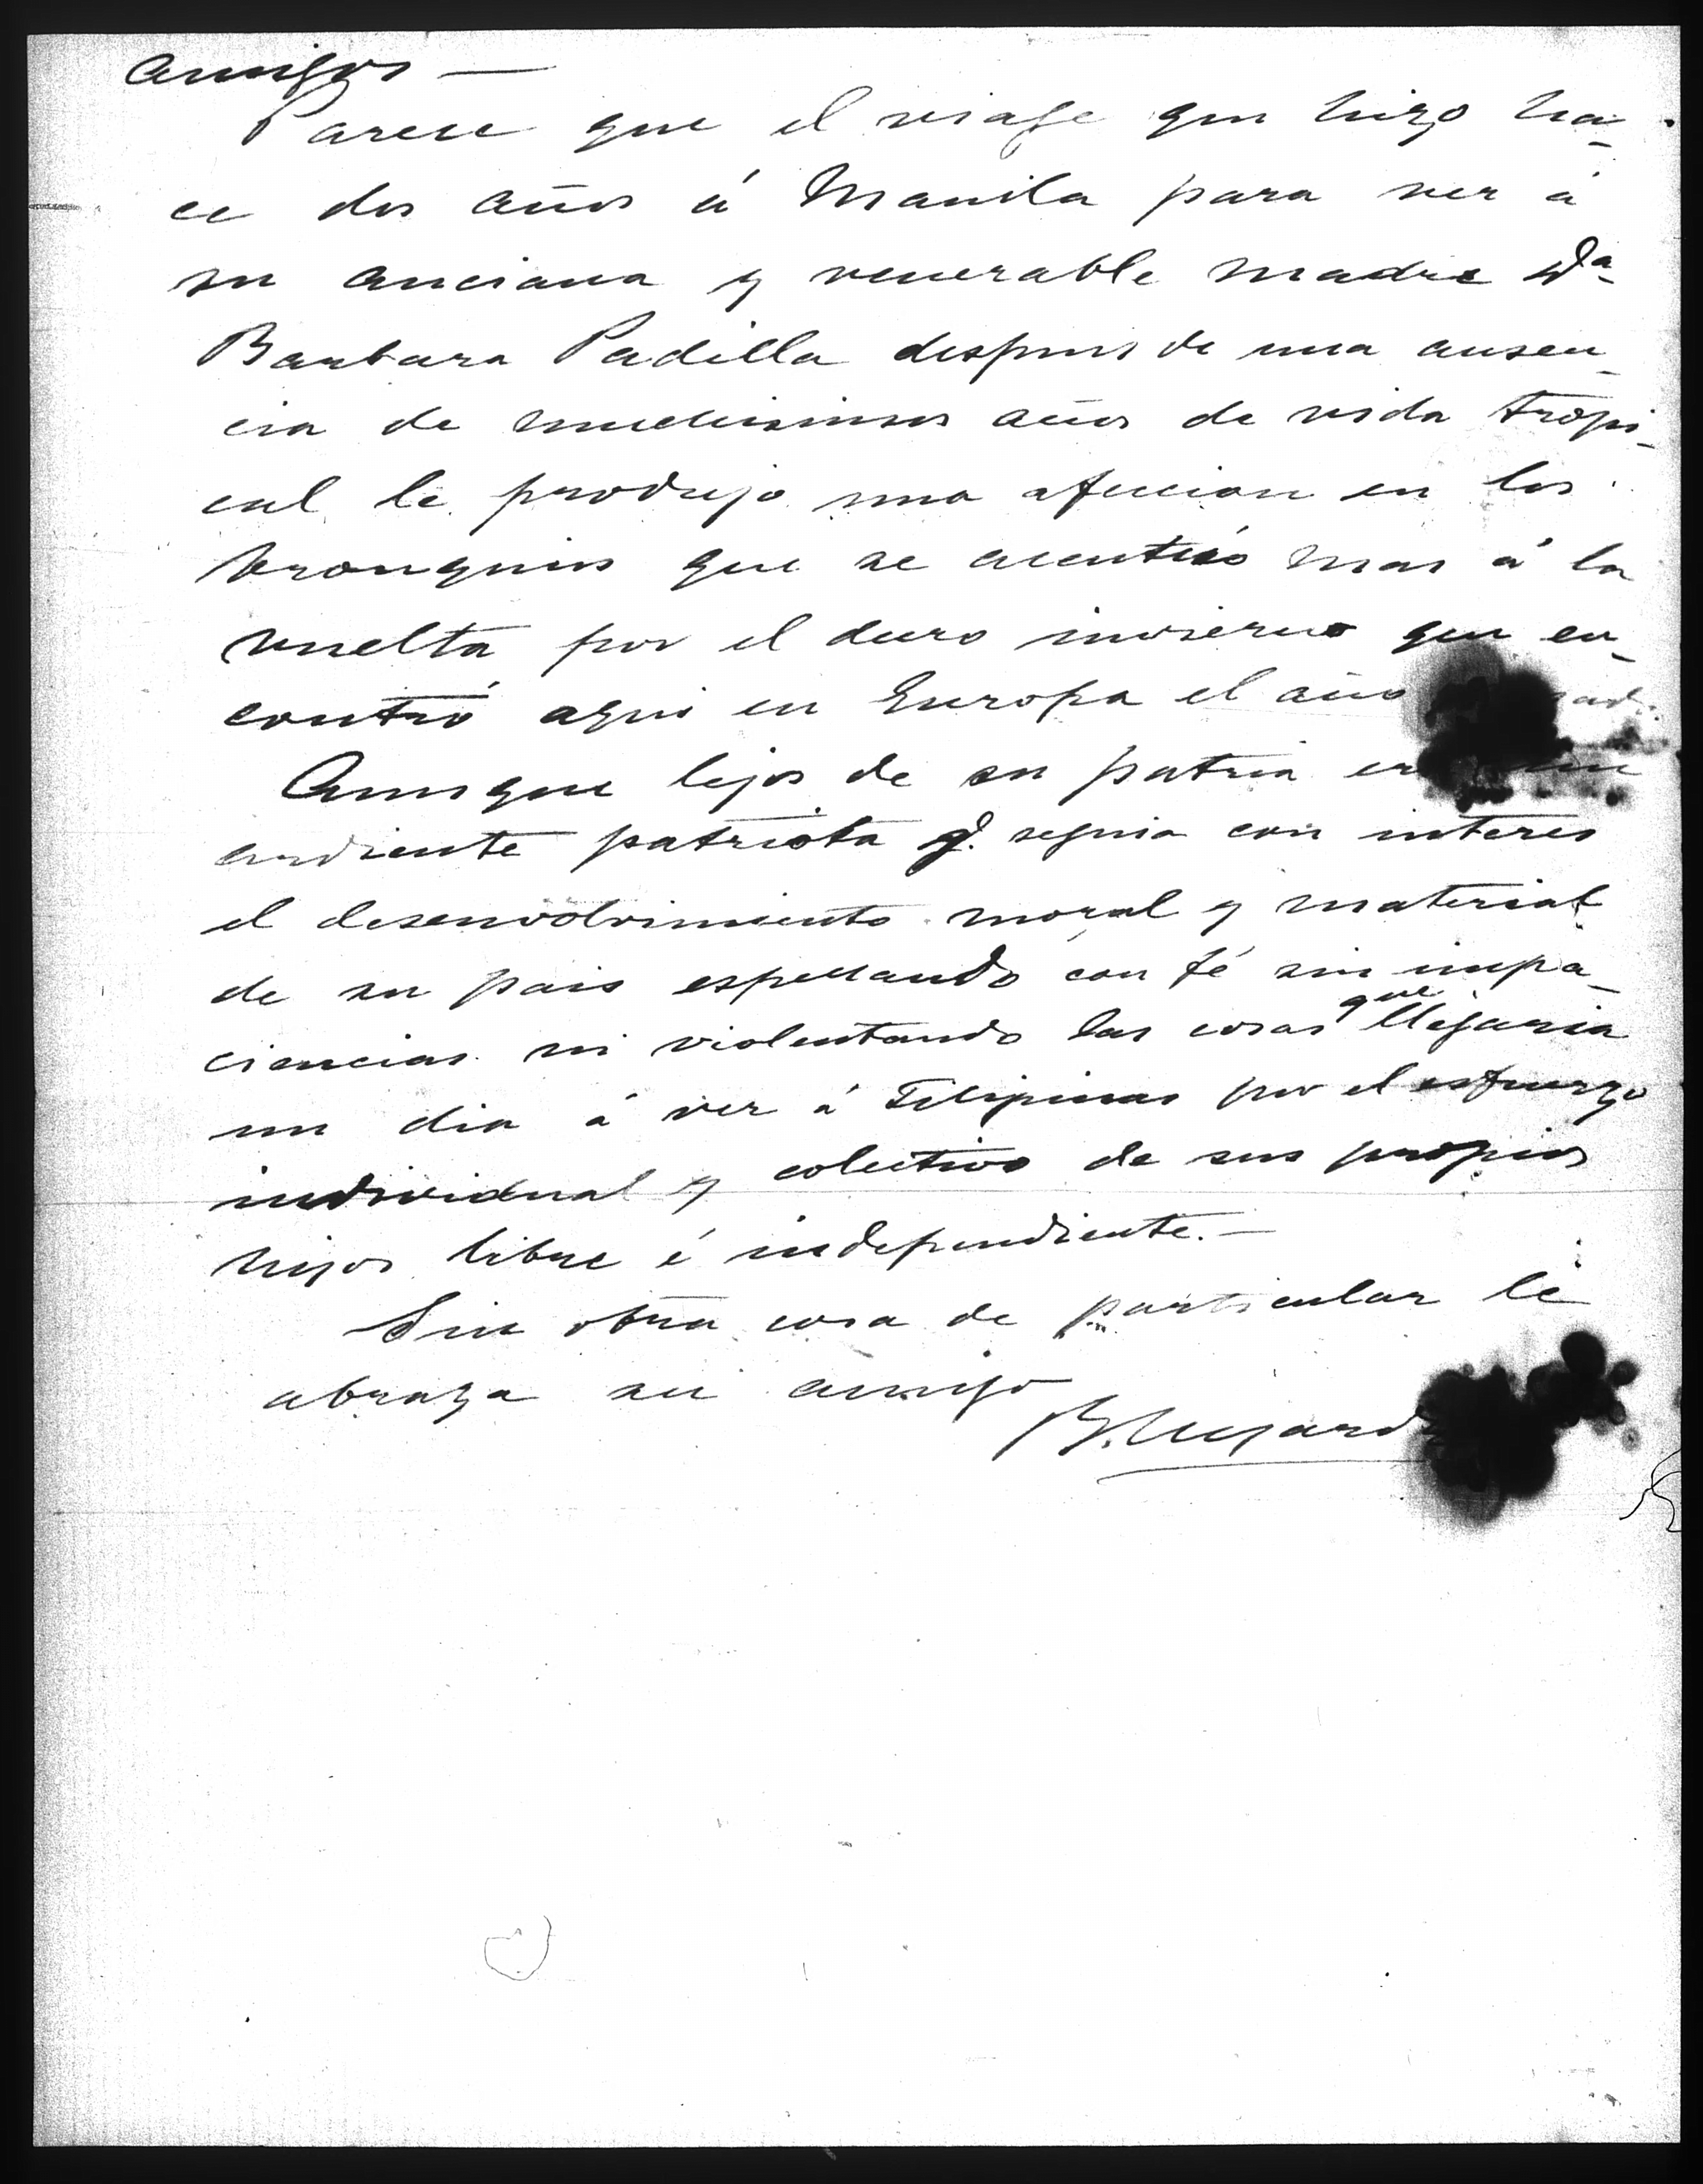 amigos —
Parece que el viage que hizo ha-
ce dos años á Manila para ver á
su anciana y venerable madre Da
Barbara Padilla despues de una ausen-
cia de muchisimos años de vida tropi-
cal le produjo una afeccion en los
bronquios que se acentuó mas á la
vuelta por el duro invierno que en-
contró aqui en Europa el año
Aunque lejos de su patria un
ardiente patriota q. seguia con interes
el desenvolvimiento moral y material
de su pais esperando con fé sin impa-
ciencias ni violentando las cosas que llegaria
un dia á ver á Filipinas por el esfuerzo
individual y colectivo de sus propios
hijos libre é independiente.—
Sin otra cosa de particular le
abraza su amigo